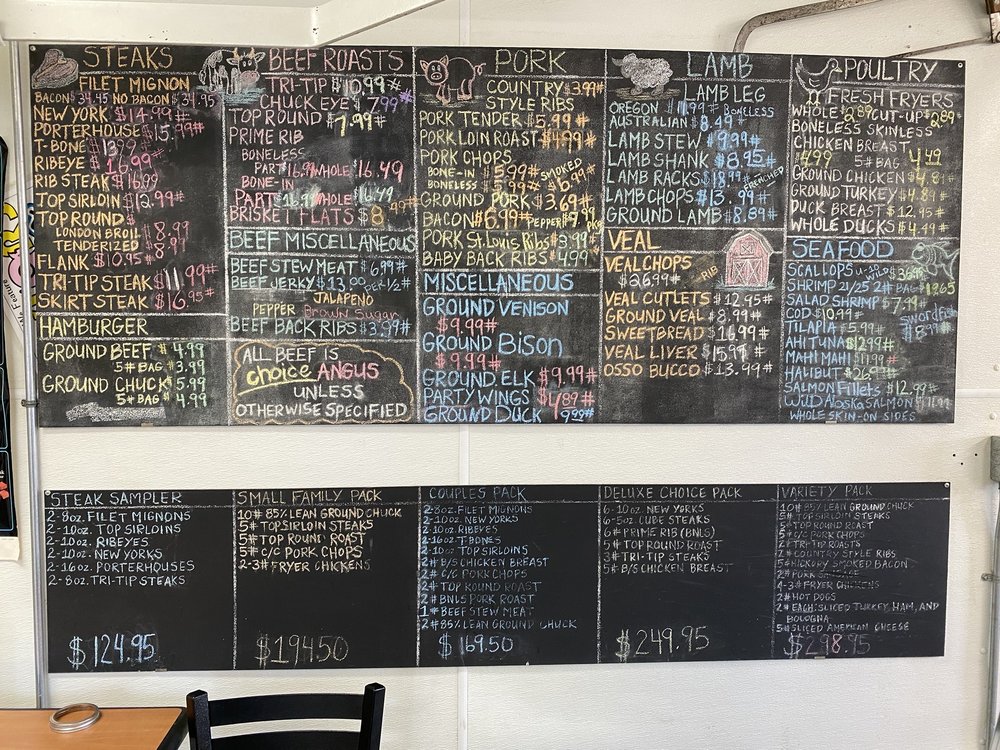 STEAKS
FILET MIGNON
BACON $34.95 NO BACON $34.95
NEW YORK $14.99#
PORTERHOUSE $15.99#
T-BONE $13.99
RIBEYE $16.99
RIB STEAK $16.99
TOP SIRLOIN $12.99#
TOP ROUND
LONDON BROIL $8.99
TENDERIZED $8.99
FLANK $10.95#
TRI-TIP STEAK $11.99#
SKIRT STEAK $16.95#
HAMBURGER
GROUND BEEF $4.99
5# BAG $3.99
GROUND CHUCK $5.99
5# BAG $4.99
BEEF ROASTS
TRI-TIP $10.99#
CHUCK EYE $7.99#
TOP ROUND $7.99#
PRIME RIB
BONELESS
PART $16.99 WHOLE $16.49
BONE-IN
PART $16.99 WHOLE $16.49
BRISKET FLATS $8.99#
BEEF MISCELLANEOUS
BEEF STEW MEAT $6.99#
BEEF JERKY $13.00 PER 1/2#
JALAPENO
PEPPER Brown Sugar
BEEF BACK RIBS $3.99#
ALL BEEF IS
choice ANGUS
UNLESS
OTHERWISE SPECIFIED
PORK
COUNTRY $3.99#
STYLE RIBS
PORK TENDER $5.99#
PORK LOIN ROAST $4.99#
PORK CHOPS
BONE-IN $5.99# SMOKED
BONELESS $5.99# $6.99#
GROUND PORK $3.69#
BACON $6.99# PEPPER $9.99 PKG
PORK St. Louis Ribs $3.99#
BABY BACK RIBS $4.99#
MISCELLANEOUS
GROUND VENISON
$9.99#
GROUND Bison
$9.99#
GROUND ELK $9.99#
PARTY WINGS $4.89#
GROUND DUCK 9.99#
LAMB
LAMB LEG
OREGON $11.99# BONELESS
AUSTRALIAN $8.49#
LAMB STEW $9.99#
LAMB SHANK $8.95#
LAMB RACKS $18.99# FRENCHED
LAMB CHOPS $13.99#
GROUND LAMB $8.89#
VEAL
VEAL CHOPS RIB
$26.99#
VEAL CUTLETS $12.95#
GROUND VEAL $8.99#
SWEETBREAD $16.99#
VEAL LIVER $15.99#
OSSO BUCCO $13.99#
POULTRY
FRESH FRYERS
WHOLE 2.89 CUT-UP 2.89
BONELESS SKINLESS
CHICKEN BREAST
$4.99 5# BAG 4.49
GROUND CHICKEN $4.89#
GROUND TURKEY $4.89#
DUCK BREAST $12.95#
WHOLE DUCKS $4.49#
SEAFOOD
SCALLOPS U-10 WILD
SHRIMP 21/25 2# BAG
SALAD SHRIMP $7.99#
COD $10.99#
TILAPIA $5.99#
SWORDFISH $8.99#
AHI TUNA $12.99#
MAHI MAHI $11.99#
HALIBUT $26.99#
SALMON Fillets $12.99#
Wild Alaska SALMON
WHOLE SKIN-ON SIDES
STEAK SAMPLER
2-8oz. FILET MIGNONS
2-10oz. TOP SIRLOINS
2-10oz. RIBEYES
2-10oz. NEW YORKS
2-16oz. PORTERHOUSES
2-8oz. TRI-TIP STEAKS
$124.95
SMALL FAMILY PACK
10# 85% LEAN GROUND CHUCK
5# TOP SIRLOIN STEAKS
5# TOP ROUND ROAST
5# C/C PORK CHOPS
2-3# FRYER CHICKENS
$194.50
COUPLES PACK
2-8oz. FILET MIGNONS
2-10oz. NEW YORKS
2-10oz. RIBEYES
2-16oz. T-BONES
2-10oz TOP SIRLOINS
2# B/S CHICKEN BREAST
2# C/C PORK CHOPS
2# TOP ROUND ROAST
2# BNLS PORK ROAST
1# BEEF STEW MEAT
2# 85% LEAN GROUND CHUCK
$169.50
DELUXE CHOICE PACK
6-10oz. NEW YORKS
6-5oz CUBE STEAKS
6# PRIME RIB (BNLS)
5# TOP ROUND ROAST
3# TRI-TIP STEAKS
5# B/S CHICKEN BREAST
$249.95
VARIETY PACK
10# 85% LEAN GROUND CHUCK
5# TOP SIRLOIN STEAKS
5# TOP ROUND ROAST
5# C/C PORK CHOPS
2# TRI-TIP ROASTS
2# COUNTRY STYLE RIBS
5# HICKORY SMOKED BACON
2# PORK SAUSAGE
4-3# FRYER CHICKENS
2# HOT DOGS
2# EACH: SLICED TURKEY, HAM, AND
BOLOGNA
5# SLICED AMERICAN CHEESE
$298.95